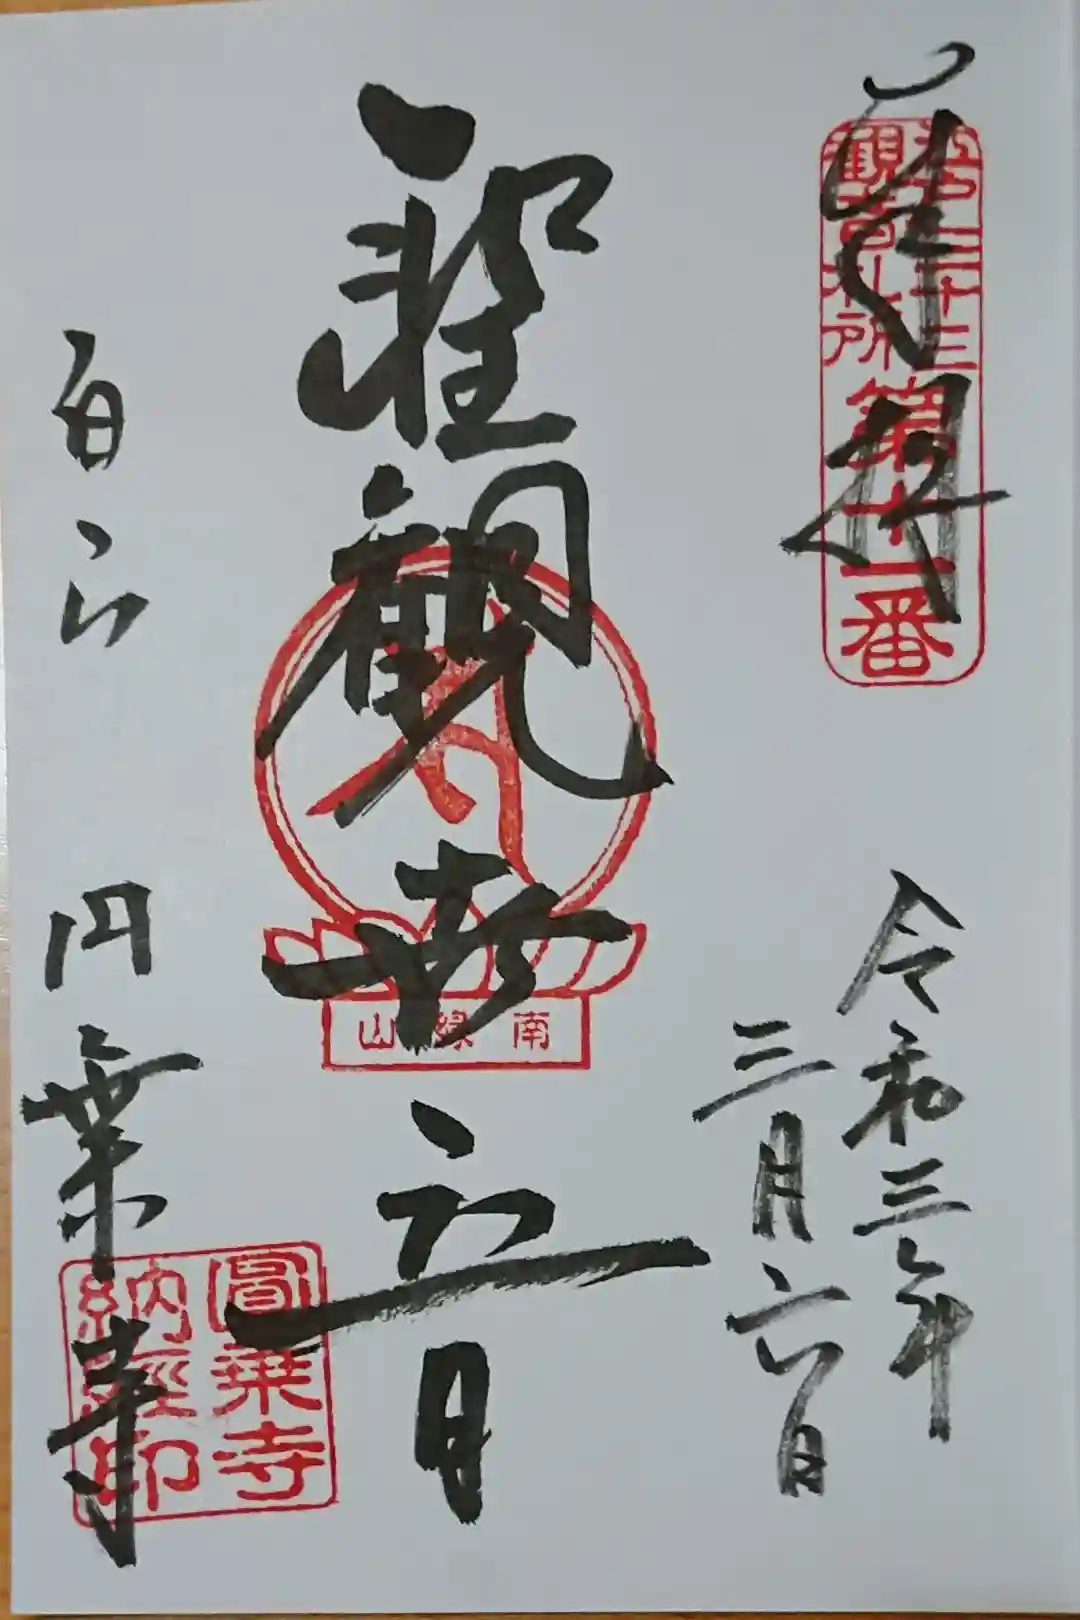 奉拝
三十三
観音札所
第十一番
令和三年
三月六日
聖観世音
南緑山
白山
円乗寺
圓乗寺
納經印